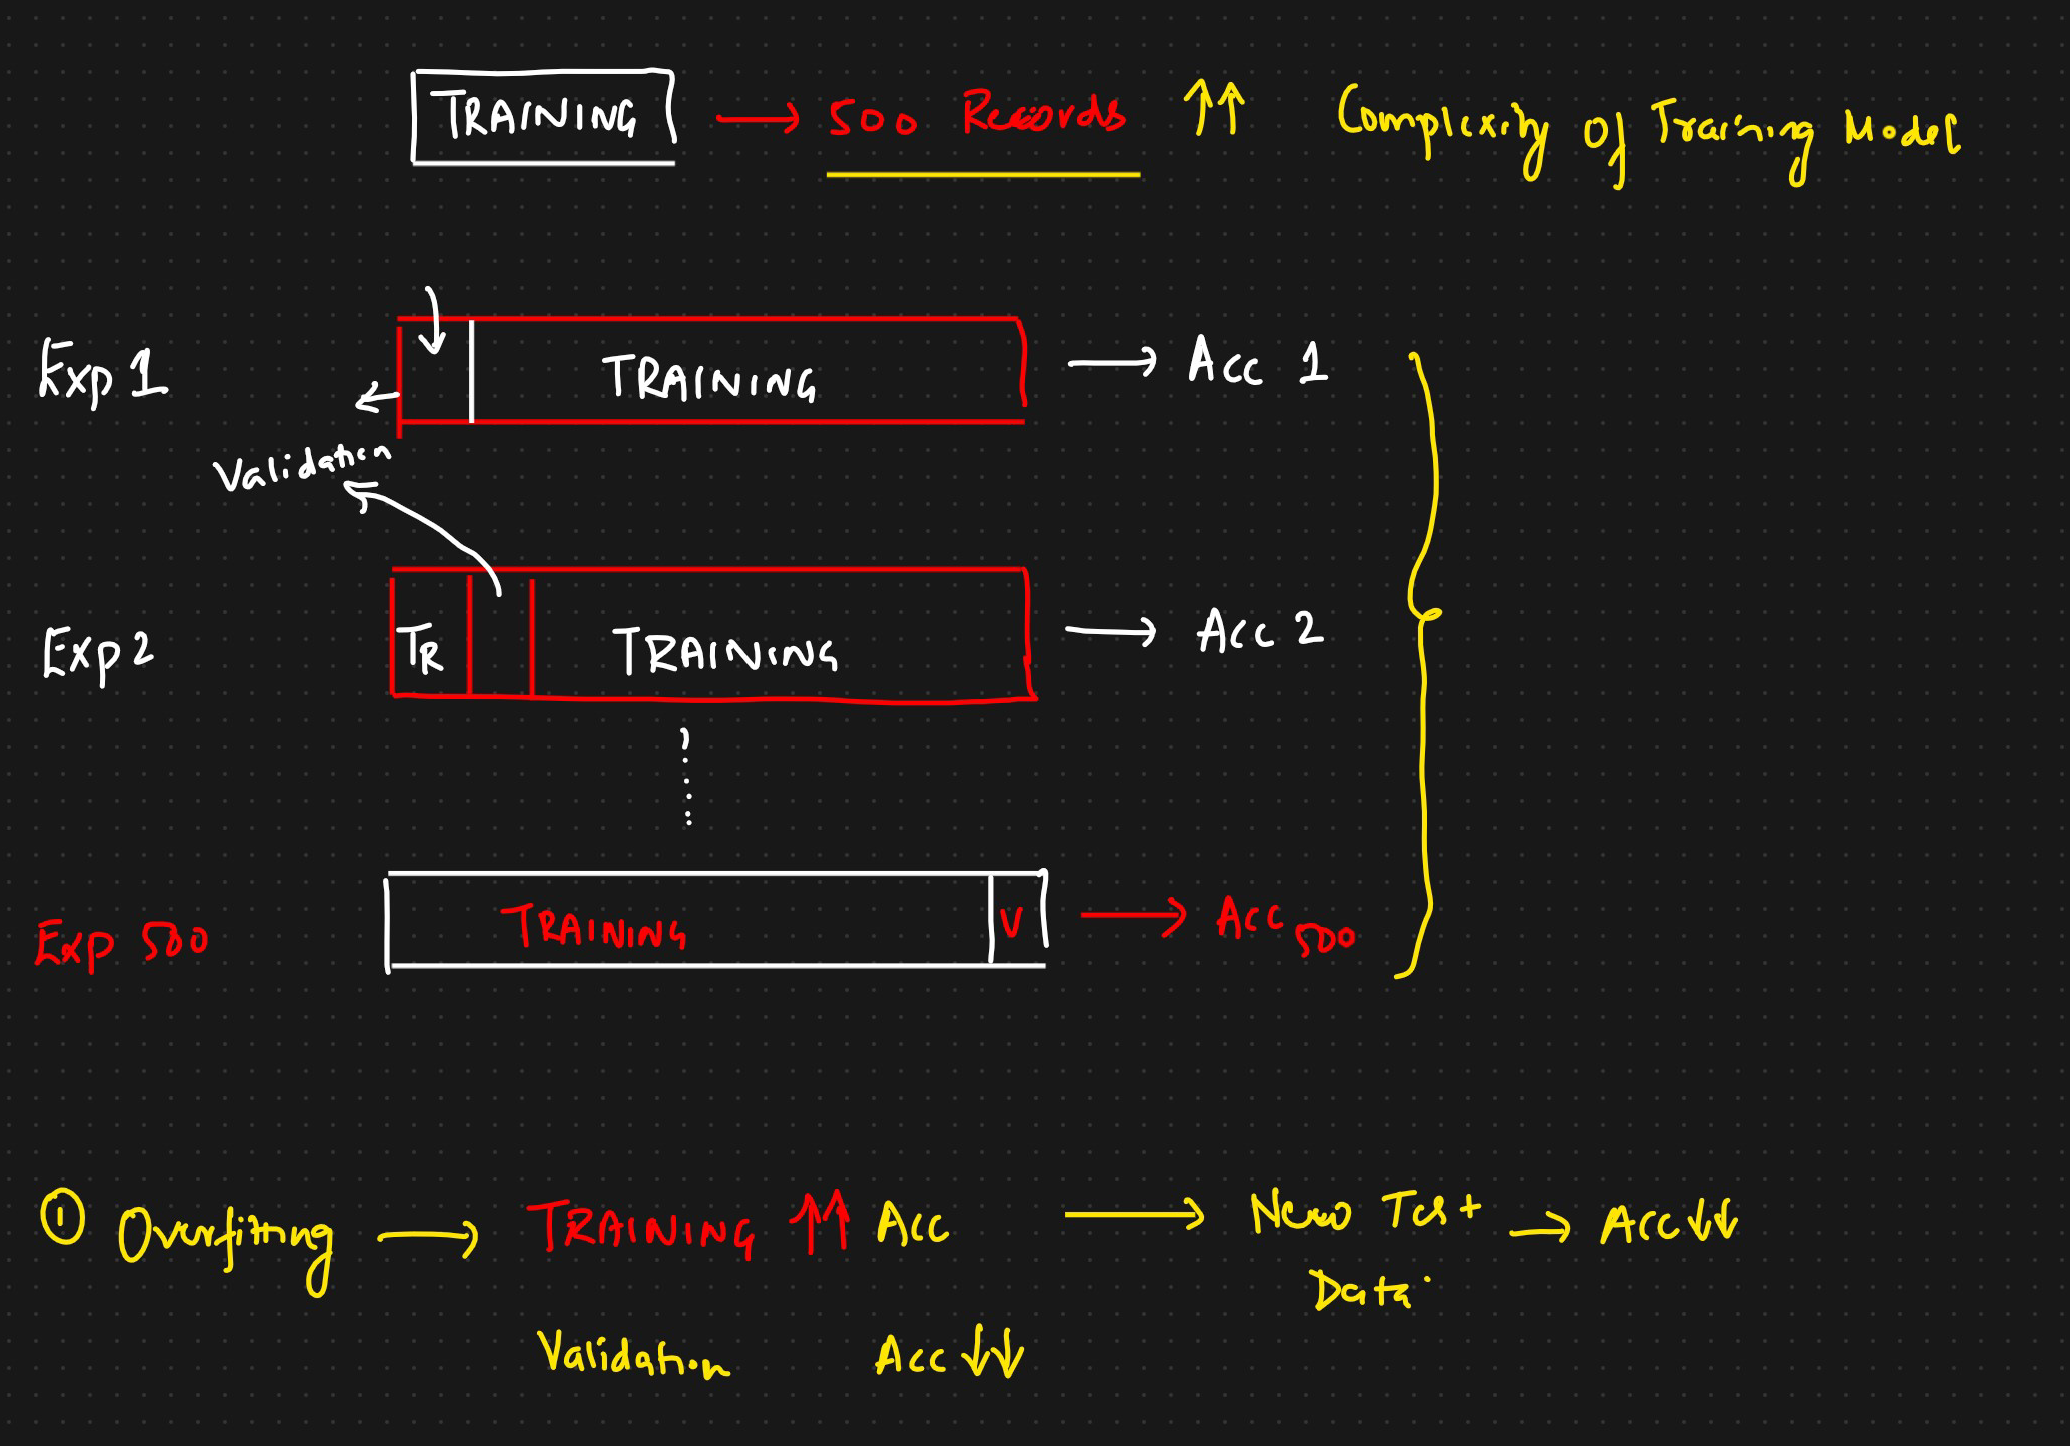 TRAINING → 500 Records ↑↑ Complexity of Training Model
Exp 1 TRAINING → Acc 1
Validation
Exp 2 TR TRAINING → Acc 2
Exp 500 TRAINING V → Acc 500
① Overfitting → TRAINING ↑↑ Acc → New Test → Acc ↓↓
Data
Validation Acc ↓↓